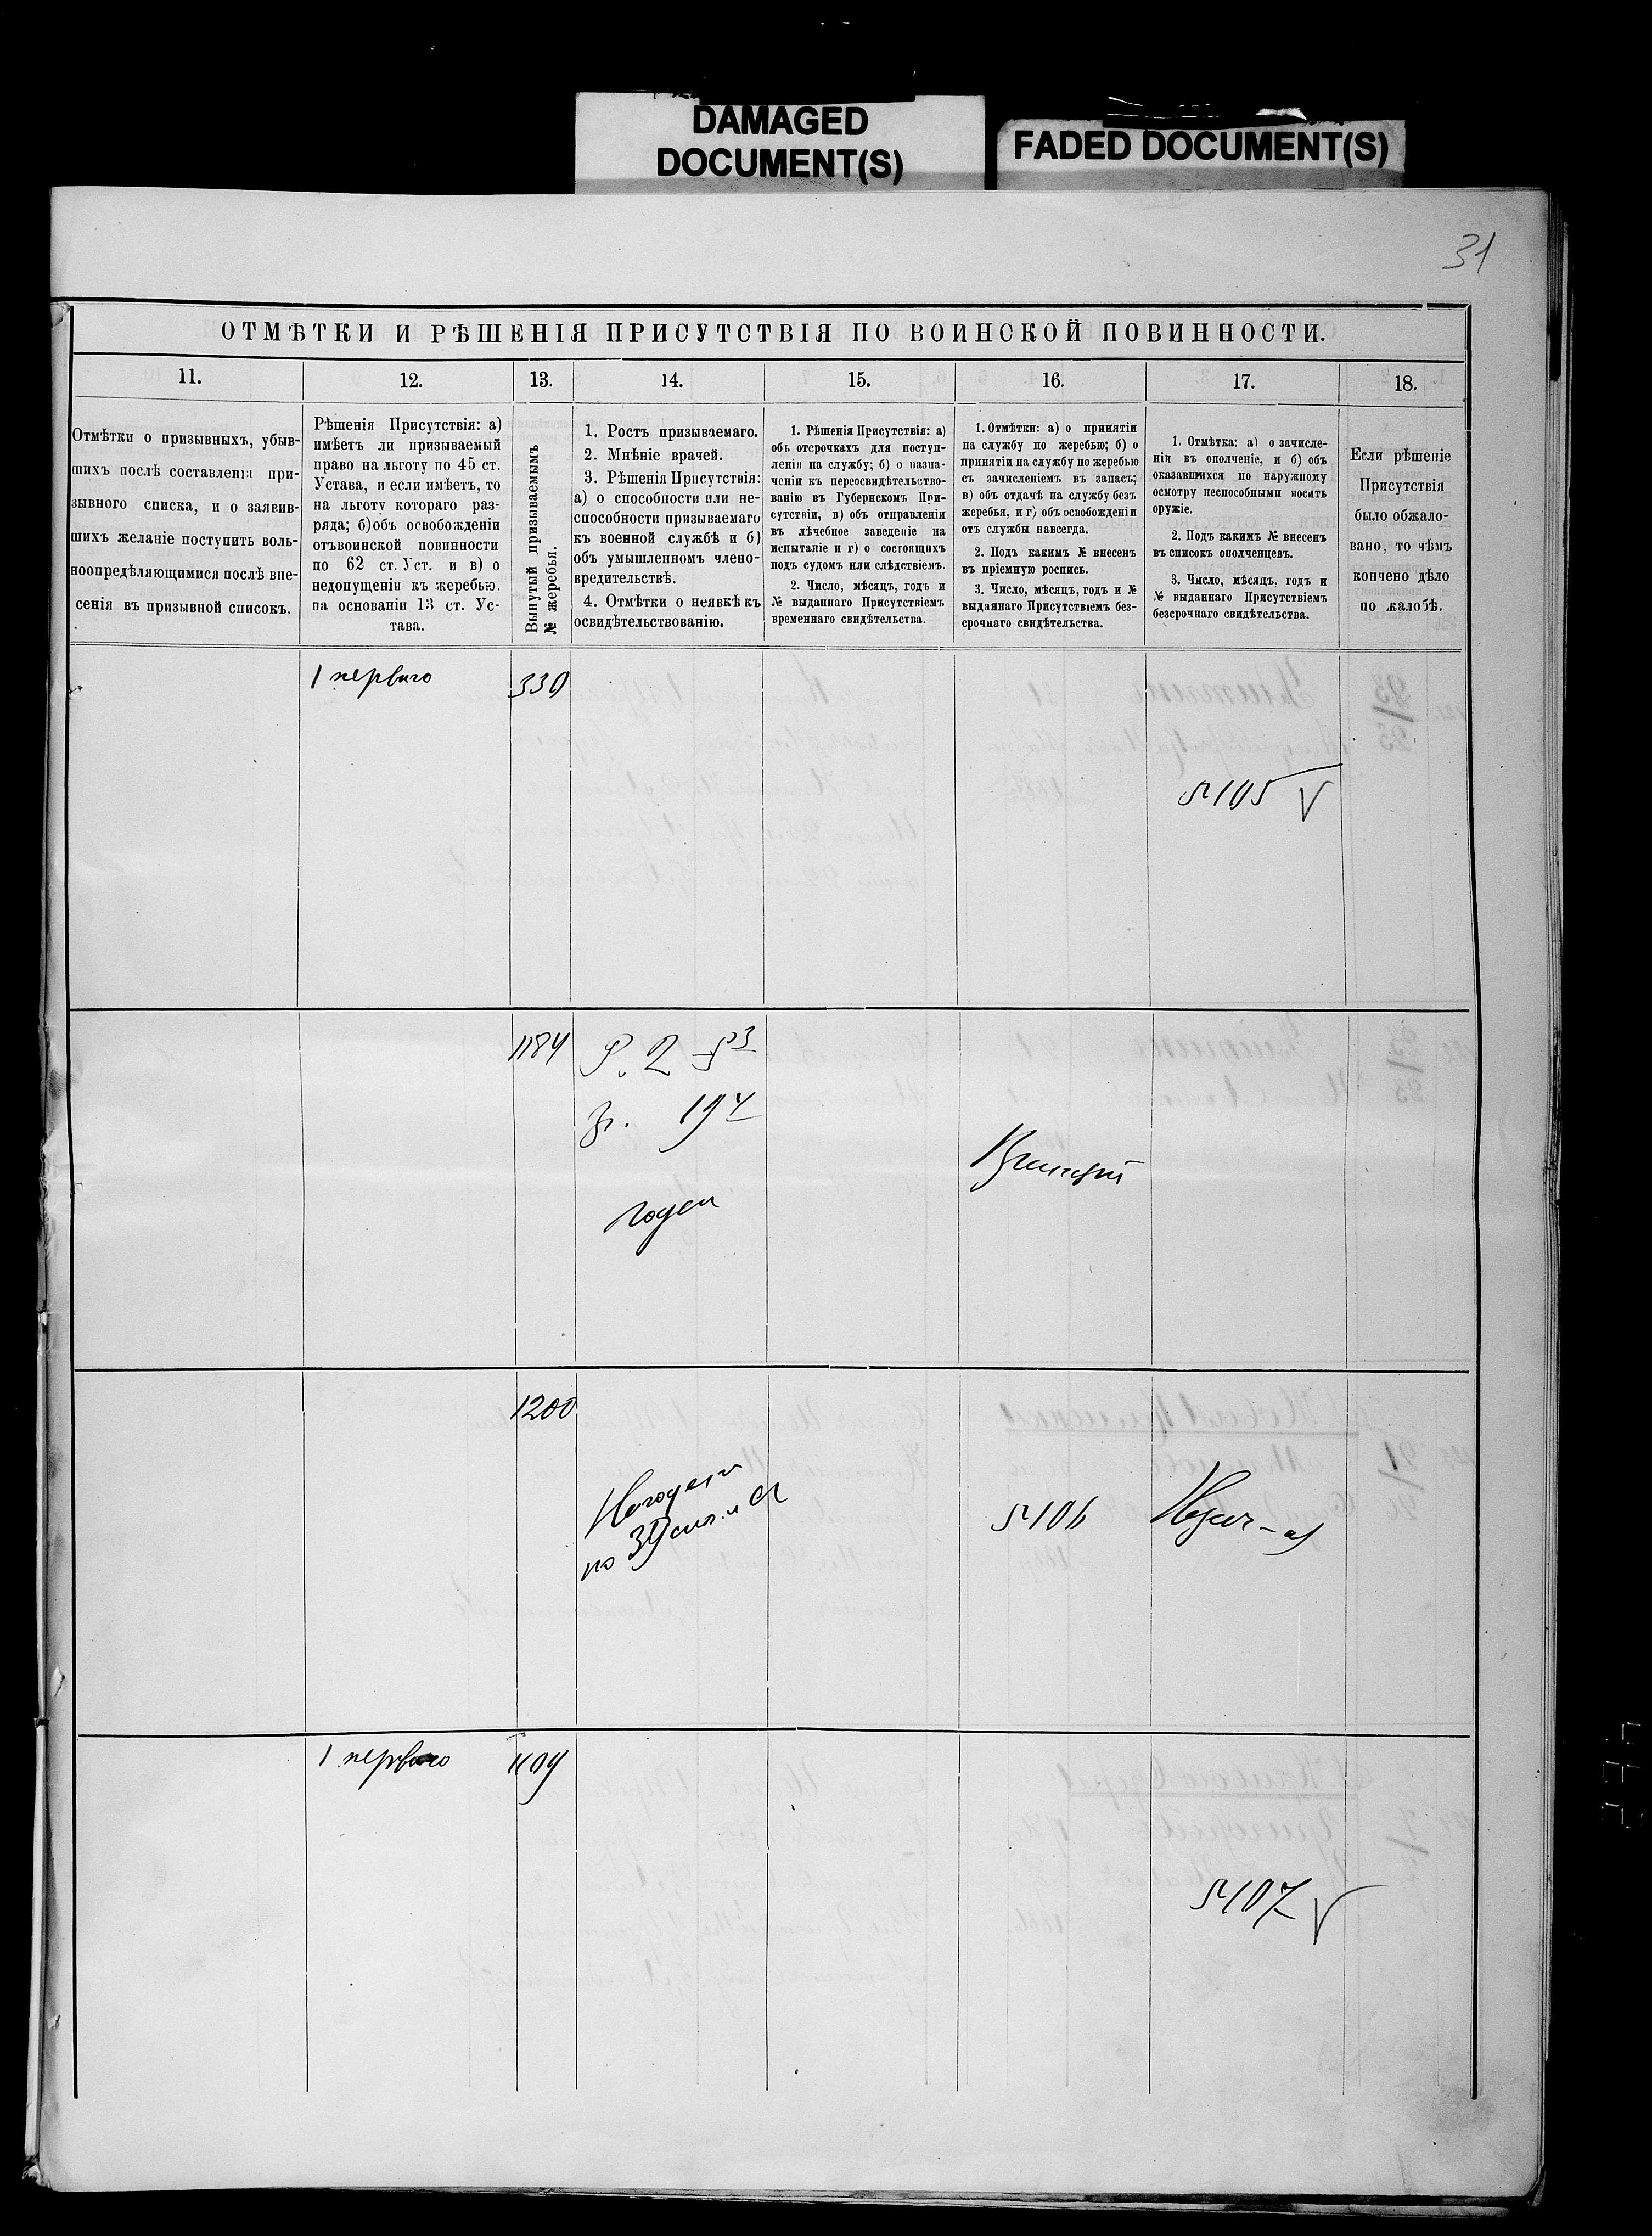 DAMAGED
DOCUMENT(S)
FADED DOCUMENT(S)
31
ОТМѢТКИ И РѢШЕНІЯ ПРИСУТСТВІЯ ПО ВОИНСКОЙ ПОВИННОСТИ.
11.
12.
13.
14.
15.
16.
17.
18.
Отмѣтки о призывныхъ, убыв-
шихъ послѣ составленія при-
зывного списка, и о заявив-
шихъ желаніе поступить воль-
ноопредѣляющимися послѣ вне-
сенія въ призывной списокъ.
Рѣшенія Присутствія: а)
имѣетъ ли призываемый
право на льготу по 45 ст.
Устава, и если имѣетъ, то
на льготу котораго раз-
ряда; б) объ освобожденіи
отъ воинской повинности
по 62 ст. Уст. и в) о
недопущеніи къ жеребью.
на основаніи 13 ст. Ус-
тава.
Вынутый призываемымъ
№ жеребья.
1. Ростъ призываемаго.
2. Мнѣніе врачей.
3. Рѣшенія Присутствія:
а) о способности или не-
способности призываемаго
къ военной службѣ и б)
объ умышленномъ члено-
вредительствѣ.
4. Отмѣтки о неявкѣ къ
освидѣтельствованію.
1. Рѣшенія Присутствія: а)
объ отсрочкахъ для поступ-
ленія на службу; б) о назна-
ченіи къ переосвидѣтельство-
ванію въ Губернскомъ При-
сутствіи, в) объ отправленіи
въ лѣчебное заведеніе на
испытаніе и г) о состоящихъ
подъ судомъ или слѣдствіемъ.
2. Число, мѣсяцъ, годъ и
№ выданнаго Присутствіемъ
временнаго свидѣтельства.
1. Отмѣтки: а) о принятіи
на службу по жеребью; б) о
принятіи на службу по жеребью
съ зачисленіемъ въ запасъ;
в) объ отдачѣ на службу безъ
жеребья, и г) объ освобожденіи
отъ службы навсегда.
2. Подъ какимъ № внесенъ
въ пріемную роспись.
3. Число, мѣсяцъ, годъ и №
выданнаго Присутствіемъ без-
срочнаго свидѣтельства.
1. Отмѣтка: а) о зачисле-
ніи въ ополченіе, и б) объ
оказавшихся по наружному
осмотру неспособными носить
оружіе.
2. Подъ какимъ № внесенъ
въ списокъ ополченцевъ.
3. Число, мѣсяцъ, годъ и
№ выданнаго Присутствіемъ
безсрочнаго свидѣтельства.
Если рѣшеніе
Присутствія
было обжало-
вано, то чѣмъ
кончено дѣло
по жалобѣ.
1 перваго
330
№ 105 V
1184
Р. 2
годен
1200
Негоден
по 39
№ 106
1 перваго
1109
№ 107 V